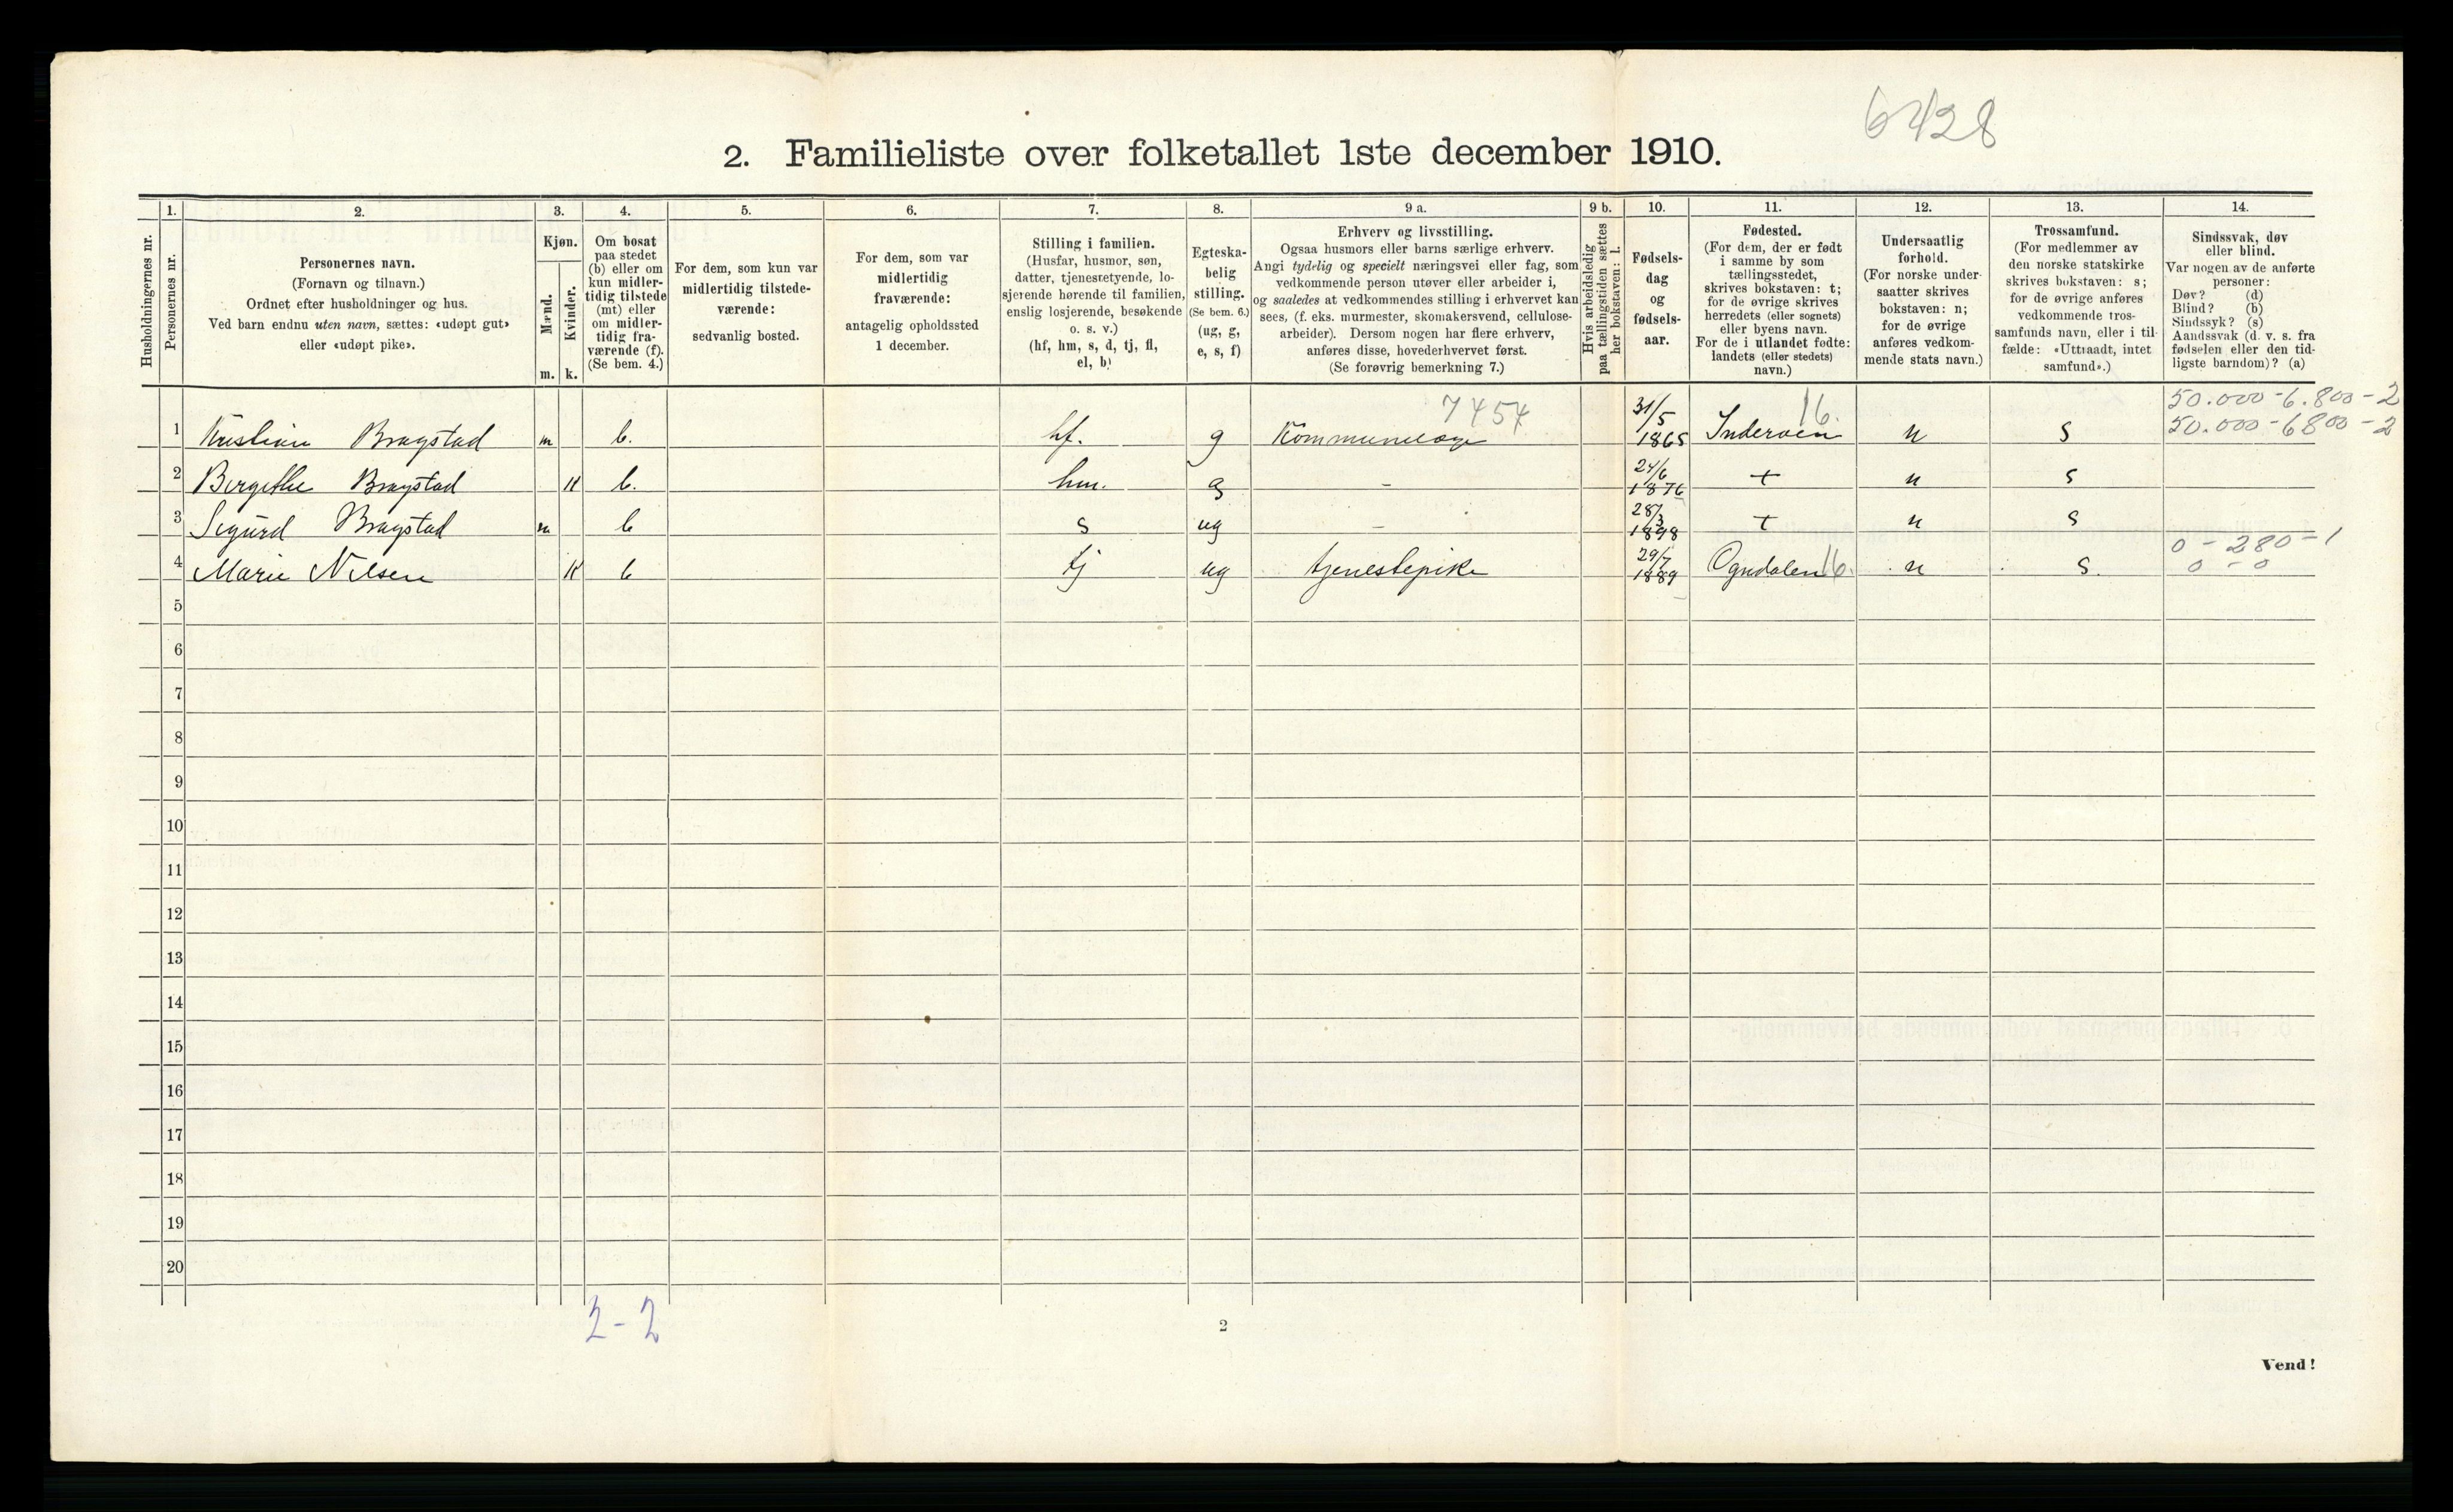 6428
2. Familieliste over folketallet 1ste december 1910.
Husholdningernes nr.
1. Personernes nr.
2. Personernes navn. (Fornavn og tilnavn.) Ordnet efter husholdninger og hus. Ved barn endnu uten navn, sættes: «udøpt gut» eller «udøpt pike».
3. Kjøn. Mænd. m. Kvinder. k.
4. Om bosat paa stedet (b) eller om kun midlertidig tilstede (mt) eller om midlertidig fraværende (f). (Se bem. 4.)
5. For dem, som kun var midlertidig tilstedeværende: sedvanlig bosted.
6. For dem, som var midlertidig fraværende: antagelig opholdssted 1 december.
7. Stilling i familien. (Husfar, husmor, søn, datter, tjenestetyende, losjerende hørende til familien, enslig losjerende, besøkende o. s. v.) (hf, hm, s, d, tj, fl, el, b)
8. Egteskabelig stilling. (Se bem. 6.) (ug, g, e, s, f)
9 a. Erhverv og livsstilling. Ogsaa husmors eller barns særlige erhverv. Angi tydelig og specielt næringsvei eller fag, som vedkommende person utøver eller arbeider i, og saaledes at vedkommendes stilling i erhvervet kan sees, (f. eks. murmester, skomakersvend, cellulosearbeider). Dersom nogen har flere erhverv, anføres disse, hovederhvervet først. (Se forøvrig bemerkning 7.)
9 b. Hvis arbeidsledig paa tællingstiden sættes her bokstaven: l.
10. Fødselsdag og fødselsaar.
11. Fødested. (For dem, der er født i samme by som tællingsstedet, skrives bokstaven: t; for de øvrige skrives herredets (eller sognets) eller byens navn. For de i utlandet fødte: landets (eller stedets) navn.)
12. Undersaatlig forhold. (For norske undersaatter skrives bokstaven: n; for de øvrige anføres vedkommende stats navn.)
13. Trossamfund. (For medlemmer av den norske statskirke skrives bokstaven: s; for de øvrige anføres vedkommende trossamfunds navn, eller i tilfælde: «Uttraadt, intet samfund».)
14. Sindssvak, døv eller blind. Var nogen av de anførte personer: Døv? (d) Blind? (b) Sindssyk? (s) Aandssvak (d. v. s. fra fødselen eller den tidligste barndom)? (a)
7454 16. 50.000-6.800-2
1 Kristian Bragstad m b. hf. g Kommunelæge 31/5 1865 Inderøen n s 50.000-6800-2
2 Bergithe Bragstad k b. hm. g - 24/6 1876 t n s
3 Sigurd Bragstad m b s ug - 28/3 1898 t n s
0-280-1
4 Marie Nilsen k b tj ug tjenestepike 29/7 1889 Ogndalen 16. n s. 0-0
5
6
7
8
9
10
11
12
13
14
15
16
17
18
19
20
2-2
2
Vend!